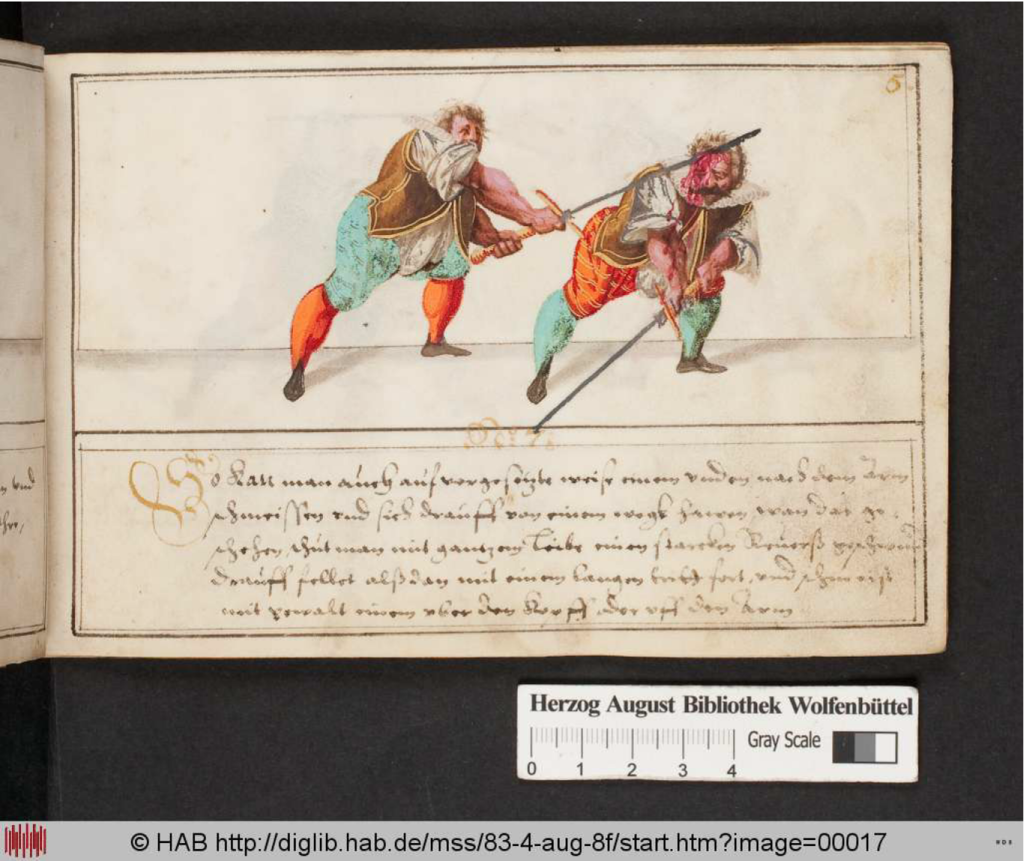 5
So kan man auch auf vorgesetzte weise einem vnden nach dem Arm
schmeissen vnd sich drauff von einem wegk hawen, wan das ge,
schehen, thut man mit gantzem leibe einen starcken Reuerß
drauff fellet alß dan mit einem langen tritt fort, vnd schmeist
mit gewalt einem vber den Kopff oder vff den Arm
vnd
Herzog August Bibliothek Wolfenbüttel
Gray Scale
0 1 2 3 4
© HAB http://diglib.hab.de/mss/83-4-aug-8f/start.htm?image=00017